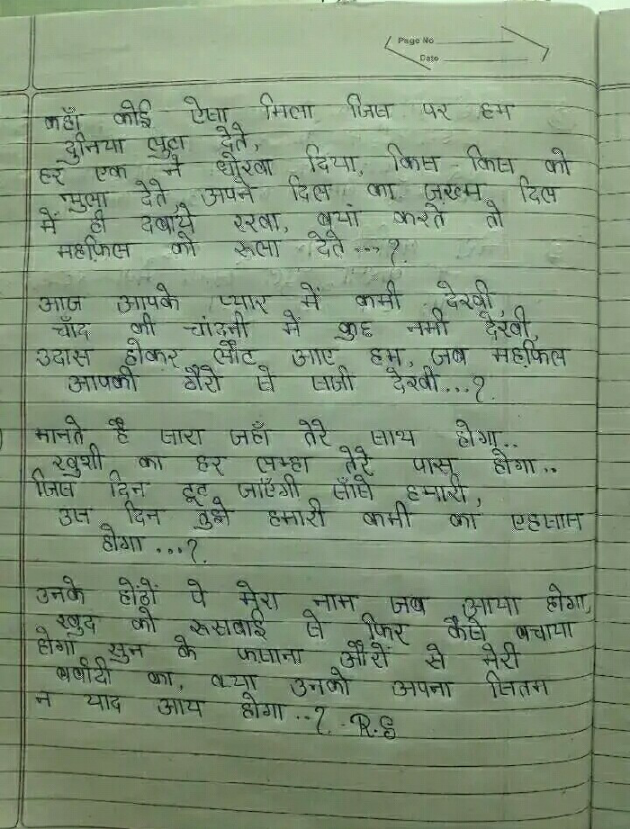 Page No
Date
कहाँ कोई ऐसा मिला जिस पर हम
दुनिया लुटा देते,
हर एक ने धोखा दिया, किस-किस को
भुला देते, अपने दिल का ज़ख्म दिल
में ही दबाये रखा, बयां करते तो
महफिल को रूला देते...?
आज आपके प्यार में कमी देखी,
चाँद की चांदनी में कुछ नमी देखी,
उदास होकर लौट आए हम, जब महफिल
आपकी गैरो से सजी देखी...?
मानते है सारा जहाँ तेरे साथ होगा..
खुशी का हर लम्हा तेरे पास होगा..
जिस दिन टूट जाएँगी साँसे हमारी,
उस दिन तुझे हमारी कमी का एहसास
होगा...?
उनके होंठों पे मेरा नाम जब आया होगा,
खुद को रूसवाई से फिर कैसे बचाया
होगा सुन के फसाना औरों से मेरी
बर्बादी का, क्या उनको अपना सितम
न याद आय होगा..?
R.G